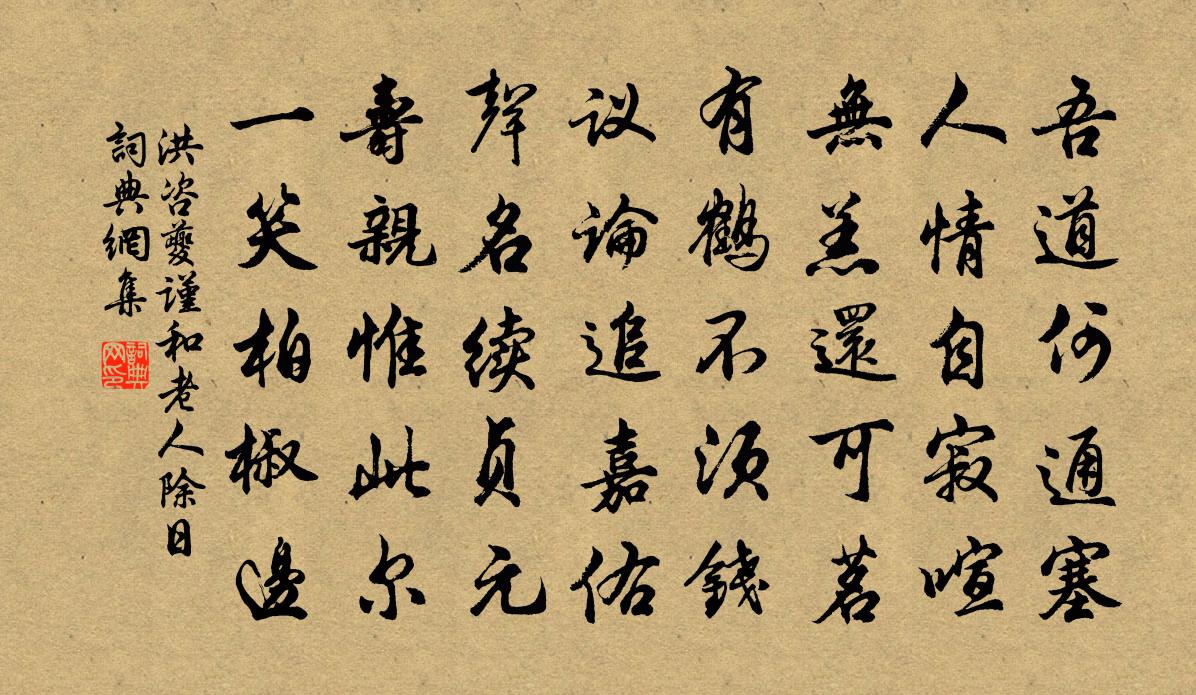 吾道何通塞
人情自寂喧
無恙還可茗
有鶴不須錢
议論追嘉佑
聲名续貞元
壽親惟此尔
一笑柏椒邊
洪咨夔謹和老人除日
詞典網集
詞典网印